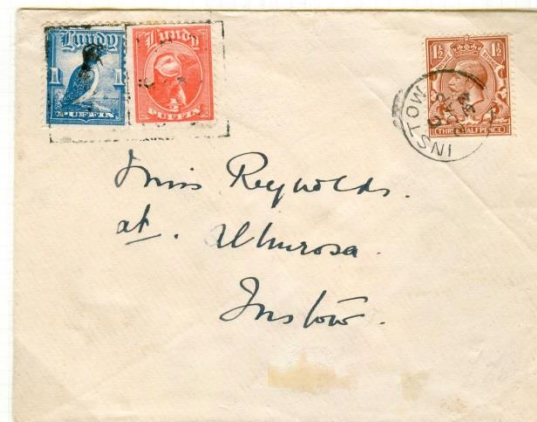 Lundy Lundy
1 1 ½
PUFFIN PUFFIN
1½ 1½
THREE HALFPENCE
INSTOW
Miss Reynolds.
at. Almurosa.
Instow.